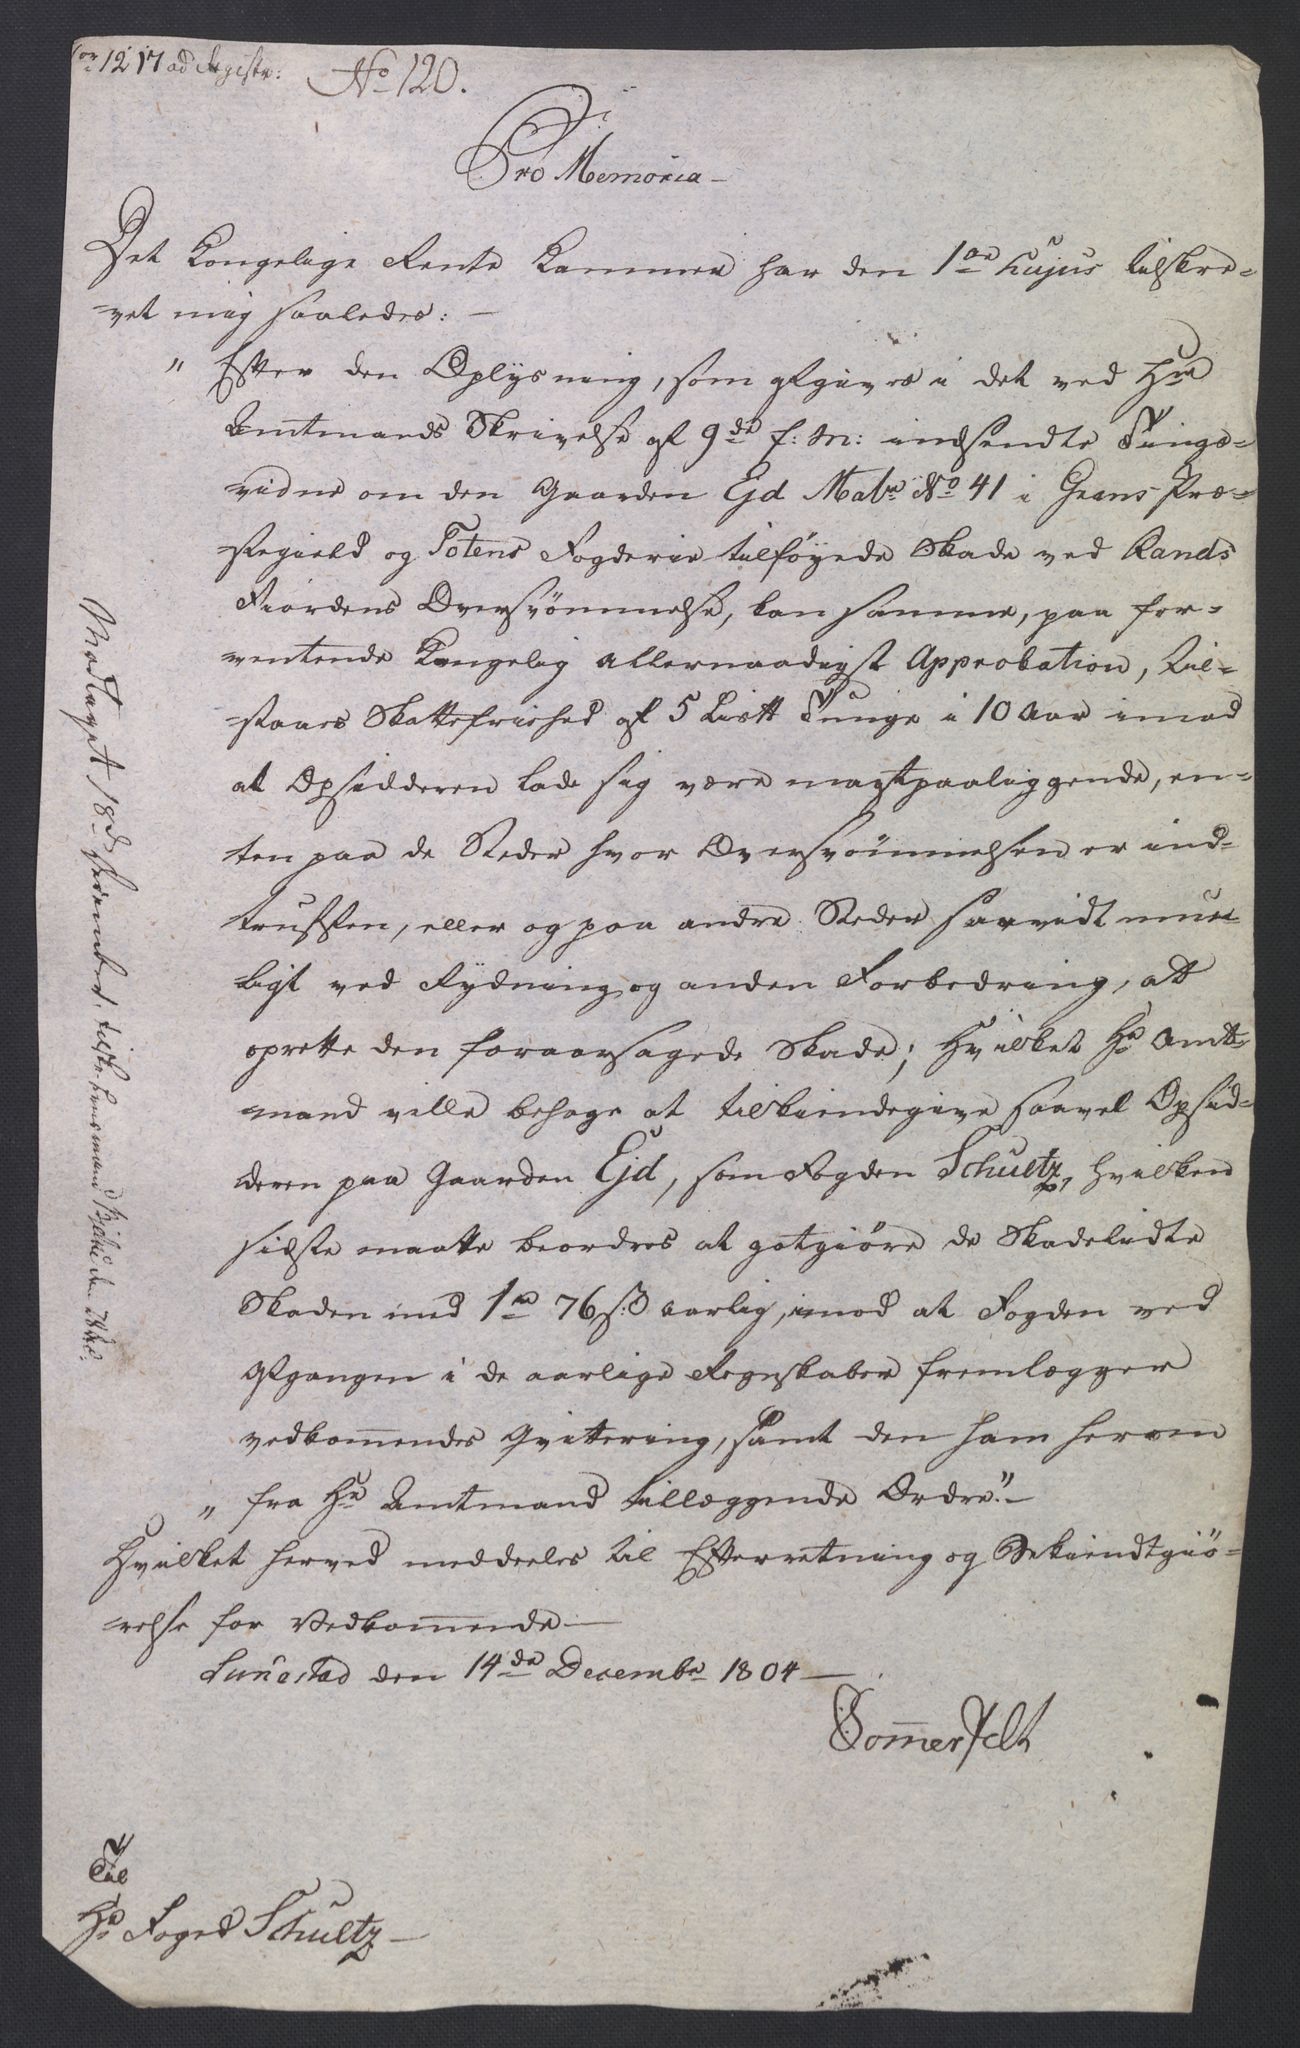 1217 ad Registr:
No 120.
Pro Memoria
Det Kongelige Rente Kammer har den 1ste hujus tilskre-
vet mig saaledes:
" Efter den Oplysning, som afgives i det ved Hrr
Amtmands Skrivelse af 9de f: M: indsendte Tings-
vidne om den Gaarden Ejd Matr No 41 i Grans Præ-
stegield og Totens Fogderie tilføyede Skade ved Rands
Fiordens Oversvömmelse, kan samme, paa for-
ventende Kongelig allernaadigst Approbation, til-
staaes Skattefriehed af 5 Listt Tunge i 10 Aar imod
at Opsidderen lade sig være magtpaaliggende, en-
ten paa de Steder hvor Oversvömmelsen er ind-
truffen, eller og paa andre Steder saavidt mue-
ligt ved Rydning og anden Forbedring, at
oprette den foraarsagede Skade; Hvilket Hr Amt-
mand ville behage at tilkiendegive saavel Opsid-
deren paa Gaarden Ejd, som Fogden Schultz, hvilken
sidste maatte beordres at gotgiöre de Skadelidte
Skaden med 1 rd 76 s: aarlig, imod at Fogden ved
Afgangen i de aarlige Regnskaber fremlægger
vedkommendes Qvittering, samt den ham herom
" fra Hr Amtmand tillæggende Ordre."
Hvilket herved meddeeles til Efterretning og Bekiendtgiö-
relse for Vedkommende
Sünestad den 14de Decembr 1804
Sommerfelt
Til
Hr Foged Schultz
Modtaget 18de